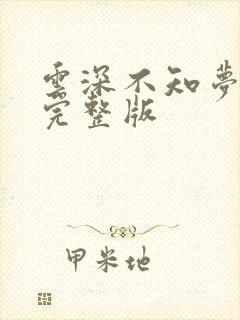 雲深不知夢
完整版
甲米地